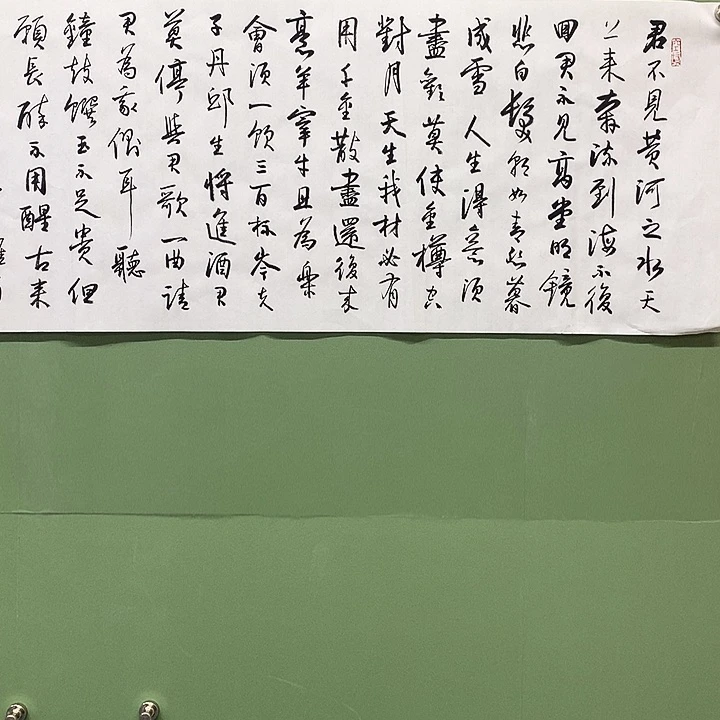 君不見黄河之水天
上来奔流到海不復
回君不見高堂明鏡
悲白髮朝如青絲暮
成雪人生得意須
盡歡莫使金樽空
對月天生我材必有
用千金散盡還復来
烹羊宰牛且為樂
會須一飲三百杯岑夫
子丹邱生將進酒君
莫停與君歌一曲請
君為我側耳聽
鐘鼓饌玉不足貴但
願長醉不用醒古来